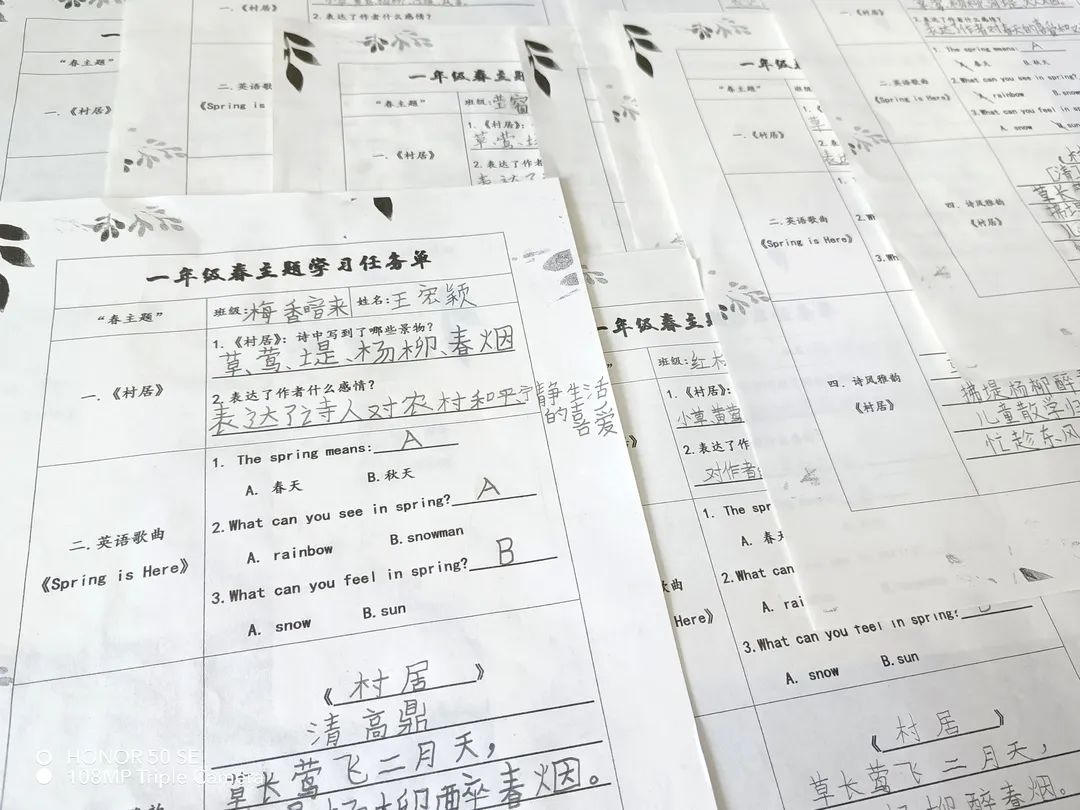 一年级春主题学习任务单
“春主题”
班级:梅香暗来
姓名:王宏颖
一.《村居》
1.《村居》: 诗中写到了哪些景物?
草、莺、堤、杨柳、春烟
2. 表达了作者什么感情?
表达了诗人对农村和平宁静生活
的喜爱
二. 英语歌曲
《Spring is Here》
1. The spring means: A
A. 春天 B. 秋天
2.What can you see in spring? A
A. rainbow B. snowman
3.What can you feel in spring? B
A. snow B. sun
《村居》
清 高鼎
草长莺飞二月天,
杨柳醉春烟。
2. 表达了作者什么感情?
二. 英语歌
《Spring is
“春主题”
一.《村居》
一年级春主题
“春主题”
班级:
一.《村居》
1.《村居》:
草、莺、
2. 表达了作者
表达了
一年级春主
班级:红梅
1.《村居》:
小草、黄莺
2. 表达了作
对作者
1. The spr
A. 春天
2.What can
A. rai
3.What can you feel in spring?
A. snow B. sun
Here》
《村居》
草长莺飞二月天,
柳醉春烟。
一年级
“春主题”
班级
一.《村居》
二. 英语歌曲
《Spring is Here》
四. 诗风雅韵
《村居》
拂堤杨柳醉
儿童散学归
忙趁东风
一.《村居》
2. 表达了作者什么感情?
1. The spring means: A
A. 春天 B. 秋天
2.What can you see in spring?
A. rainbow B. snow
3.What can you feel in sp
A. snow B. sun
二. 英语歌曲
《Spring is Here》
四. 诗风雅韵
《村居》
草长
HONOR 50 SE
108MP Triple Camera